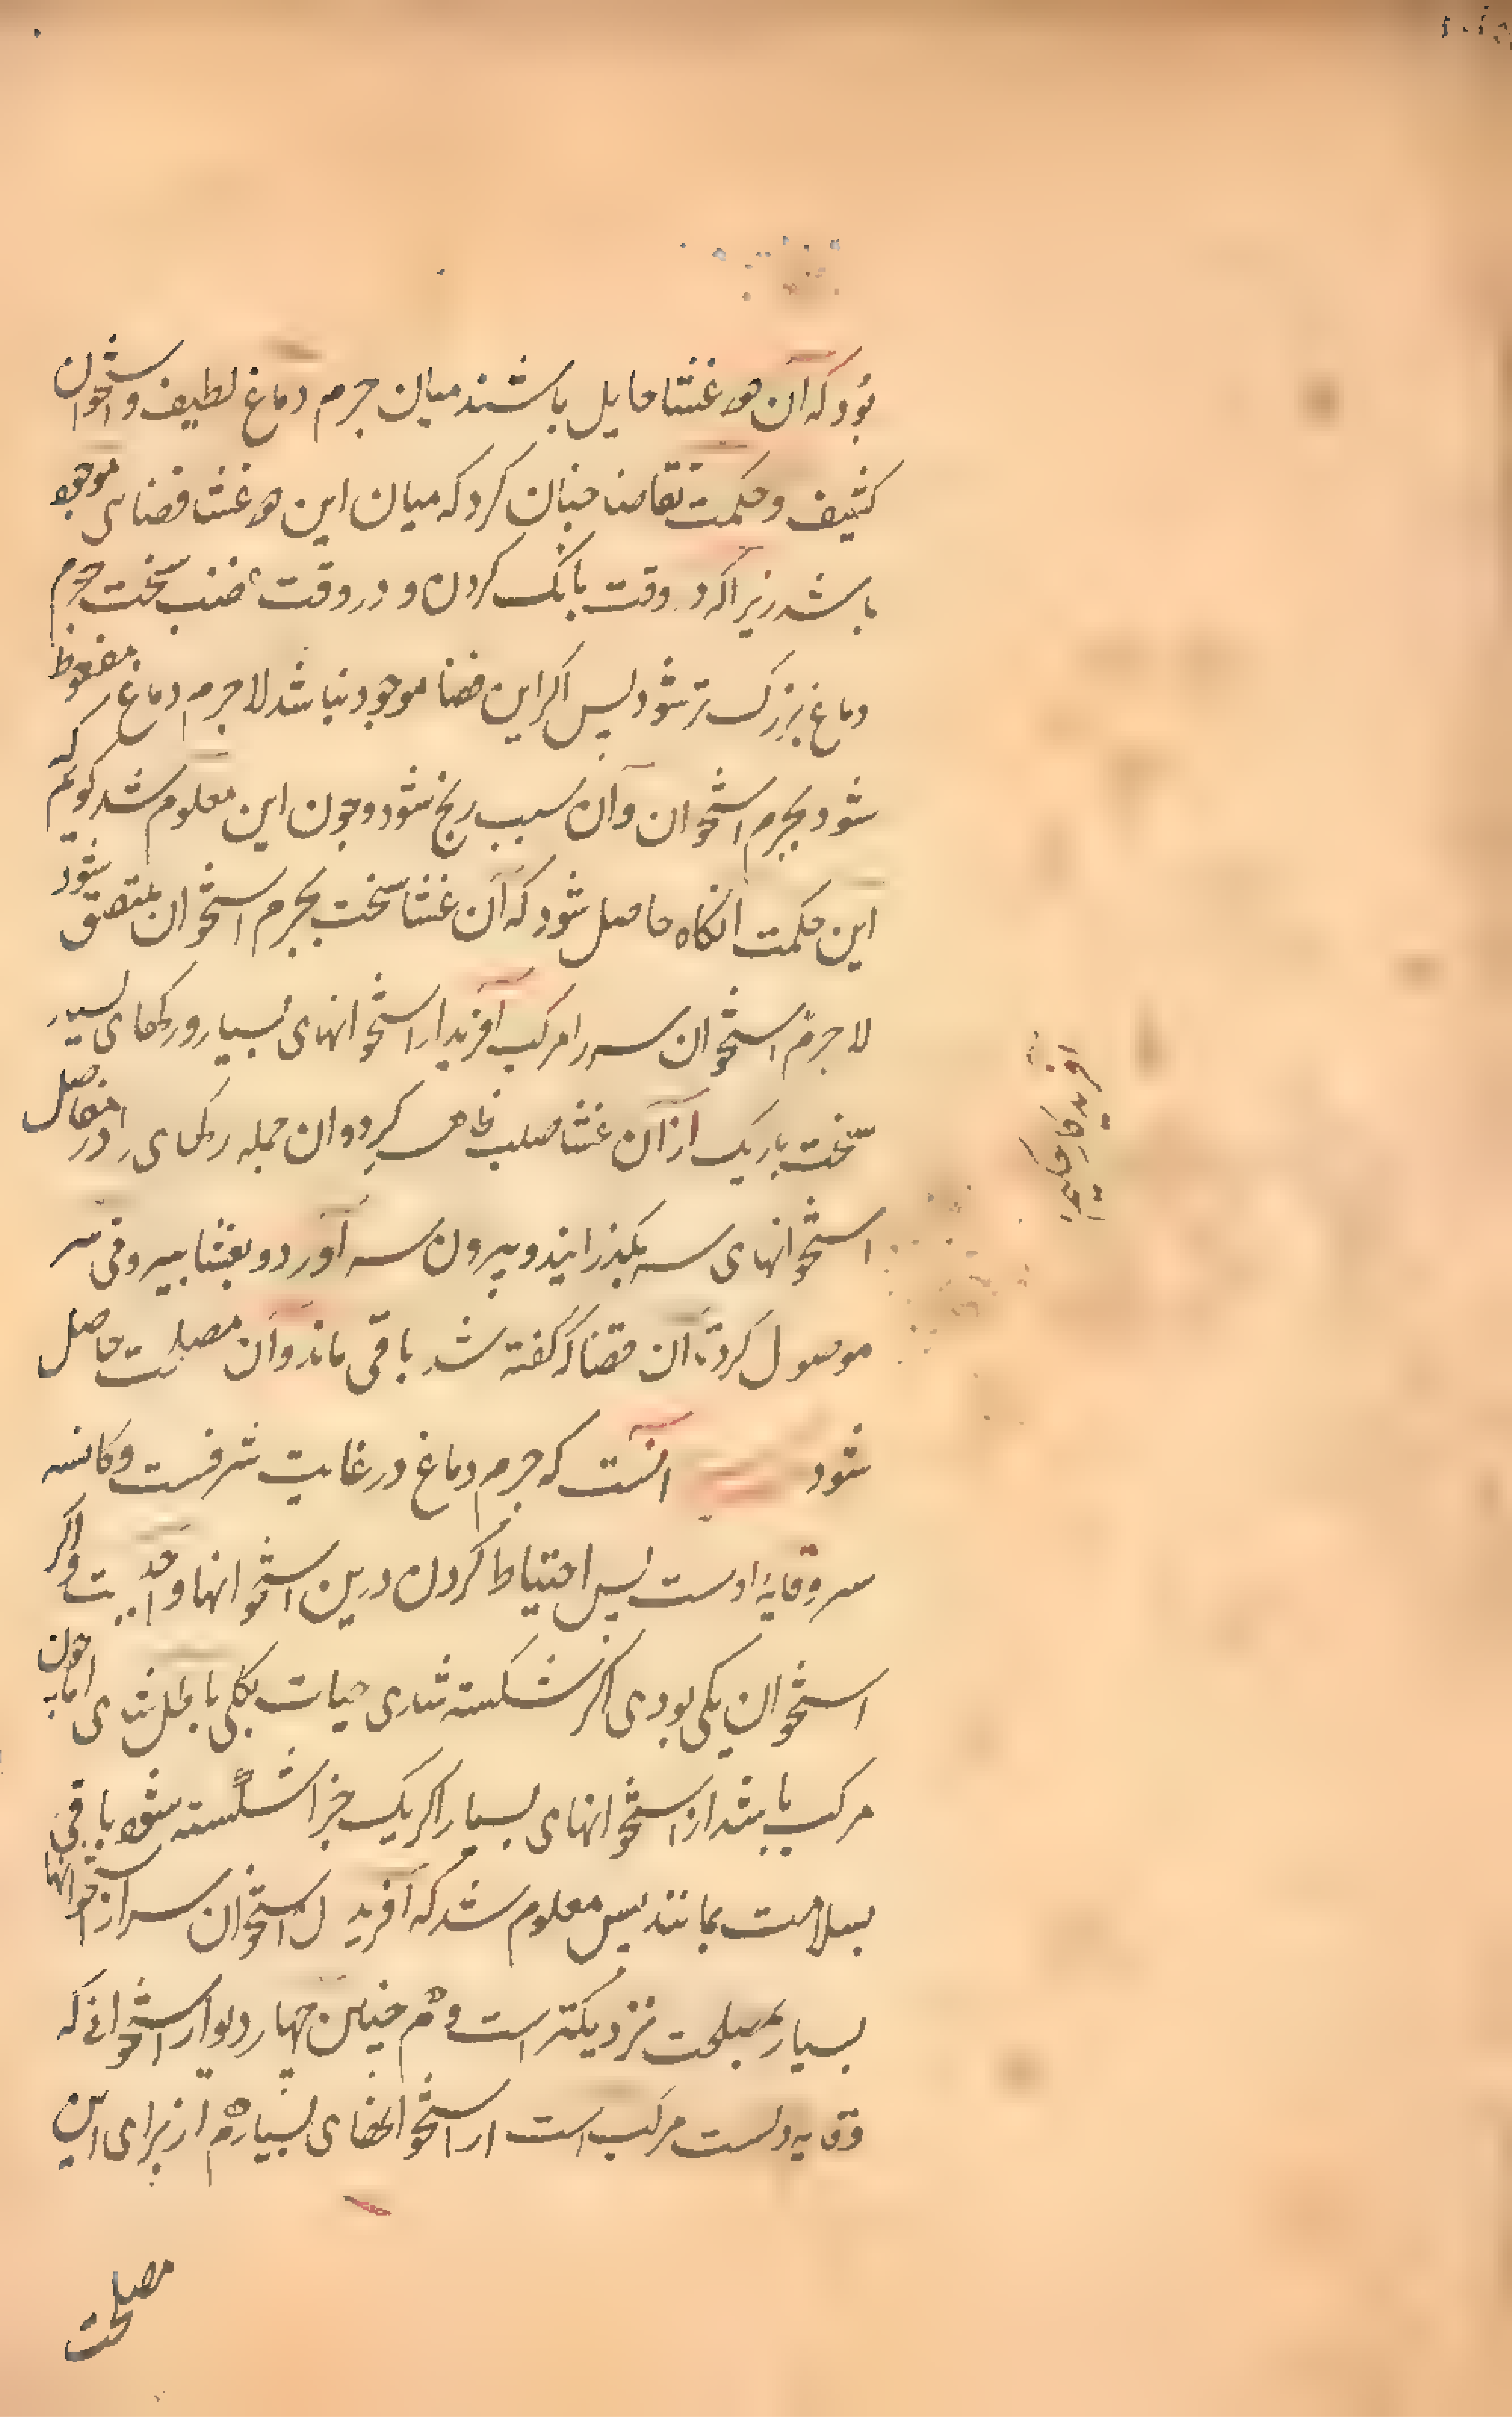 بود که آن هر غشا حایل باشند میان جرم دماغ لطیف و استخوان
کثیف و حکمت تقاضا چنان کرد که میان این هر غشا فضای موجود
باشد زیرا که در وقت بانک کردن و در وقت غضب سخت جرم
دماغ بزرک تر شود پس اکر این فضا موجود نباشد لا جرم دماغ مضغوظ
شود بجرم استخوان و آن سبب رنج شود و چون این معلوم شد کویم که
این حکمت انکاه حاصل شود که آن غشا سخت بجرم استخوان ملتصق نشود
لا جرم استخوان سر را مرکب آفرید از استخوانهای بسیار و رکهای بسیار
سخت باریک از آن غشا صلب ظاهر کرد و ان جمله رکهای را در مفاصل
استخوانهای سر بکذرانید و بیرون سر آورد و بغشا بیرونی سر
موصول کرد تا ان فضا که کفته شد باقی ماند و آن مصلحت حاصل
شود انست که جرم دماغ در غایت شرفست و کاسه
سر وقایهٔ اوست پس احتیاط کردن درین استخوانها واجبست و اکر
استخوان یکی بودی اکر شکسته شدی حیات بکلی باطل شدی اما چون
مرکب باشد از استخوانهای بسیار اکر یک جزا شکسته شود باقی
بسلامت بمانند پس معلوم شد که آفریدن استخوان سر از استخوانها
بسیار بمصلحت نزدیکتر است و هم چنین چهار دیوار استخوانی که
وقایه دلست مرکب است از استخوانهای بسیار هم از برای این
مصلحت
آفریدکار حکیم